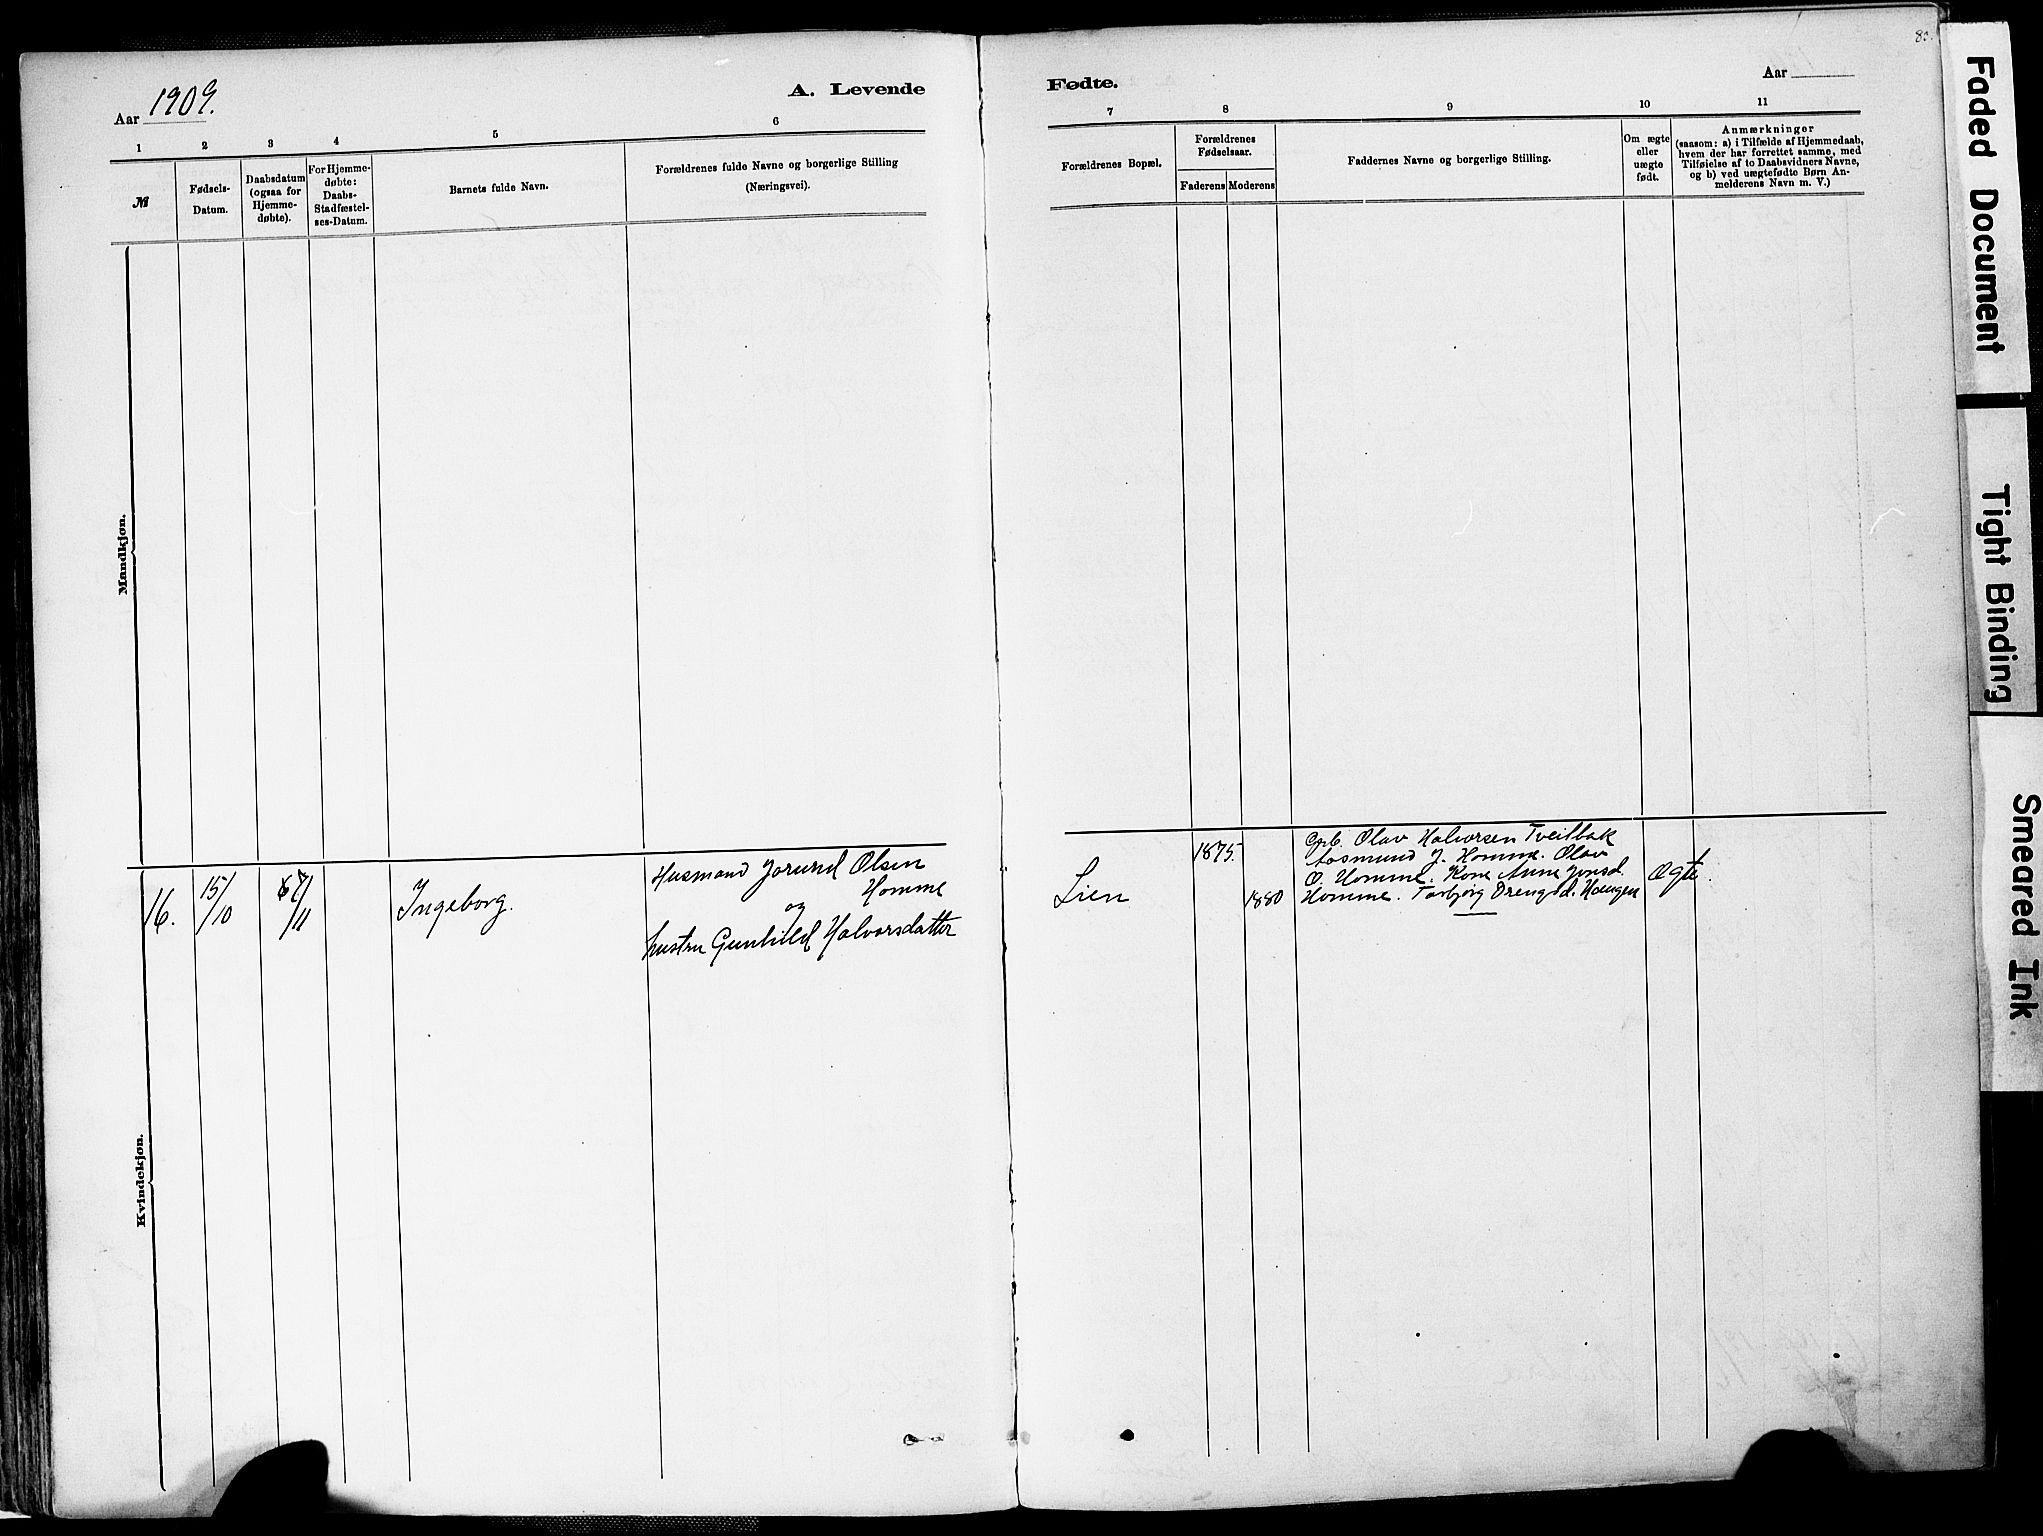 Aar 1909.
A. Levende
1 2 3 4 5 6
№
Fødsels-
Datum.
Daabsdatum
(ogsaa for
Hjemme-
døbte).
For Hjemme-
døbte:
Daabs-
Stadfæstel-
ses-Datum.
Barnets fulde Navn.
Forældrenes fulde Navne og borgerlige Stilling
(Næringsvei).
Mandkjøn.
Kvindekjøn.
16.
15/
/10
7/
/11
Ingeborg.
Husmand Jorund Olsen
Homme
og
hustru Gunhild Halvorsdatter
80.
Fødte.
Aar
7 8 9 10 11
Forældrenes Bopæl.
Forældrenes
Fødselsaar.
Faderens Moderens
Faddernes Navne og borgerlige Stilling.
Om ægte
eller
uægte
født.
Anmærkninger
(saasom: a) i Tilfælde af Hjemmedaab,
hvem der har forrettet samme, med
Tilføielse af to Daabsvidners Navne,
og b) ved uægtefødte Børn An-
melderens Navn m. V.)
Lien
1875.
1880
Gpb. Olav Halvorsen Tveitbak
Aasmund J. Homme. Olav
O. Homme. Kone Anne Jonsd.
Homme. Torbjørg Drengsd. Haugen
Ægte.
Faded Document
Tight Binding
Smeared Ink